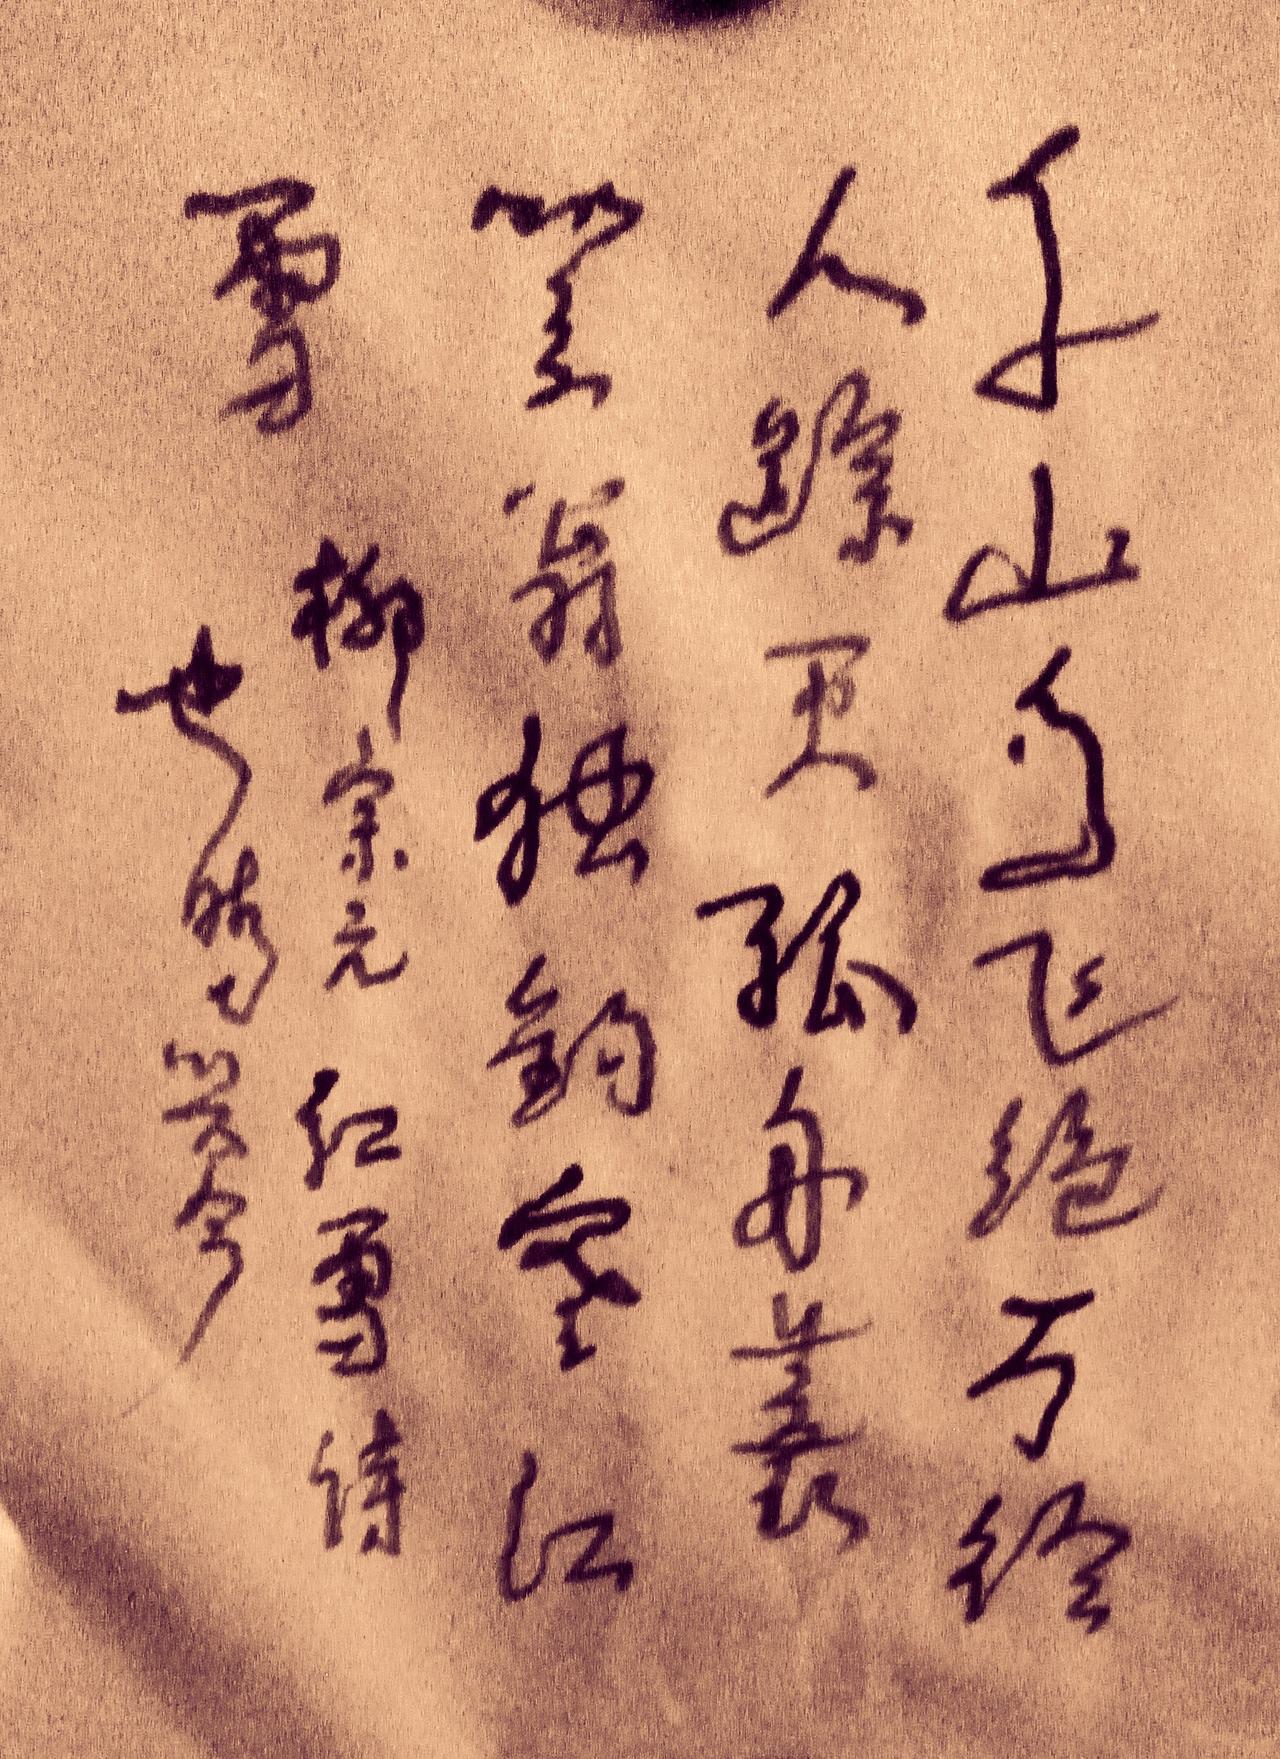 千山鸟飞绝万径
人踪灭孤舟蓑
笠翁独釣寒江
雪
柳宗元红雪诗